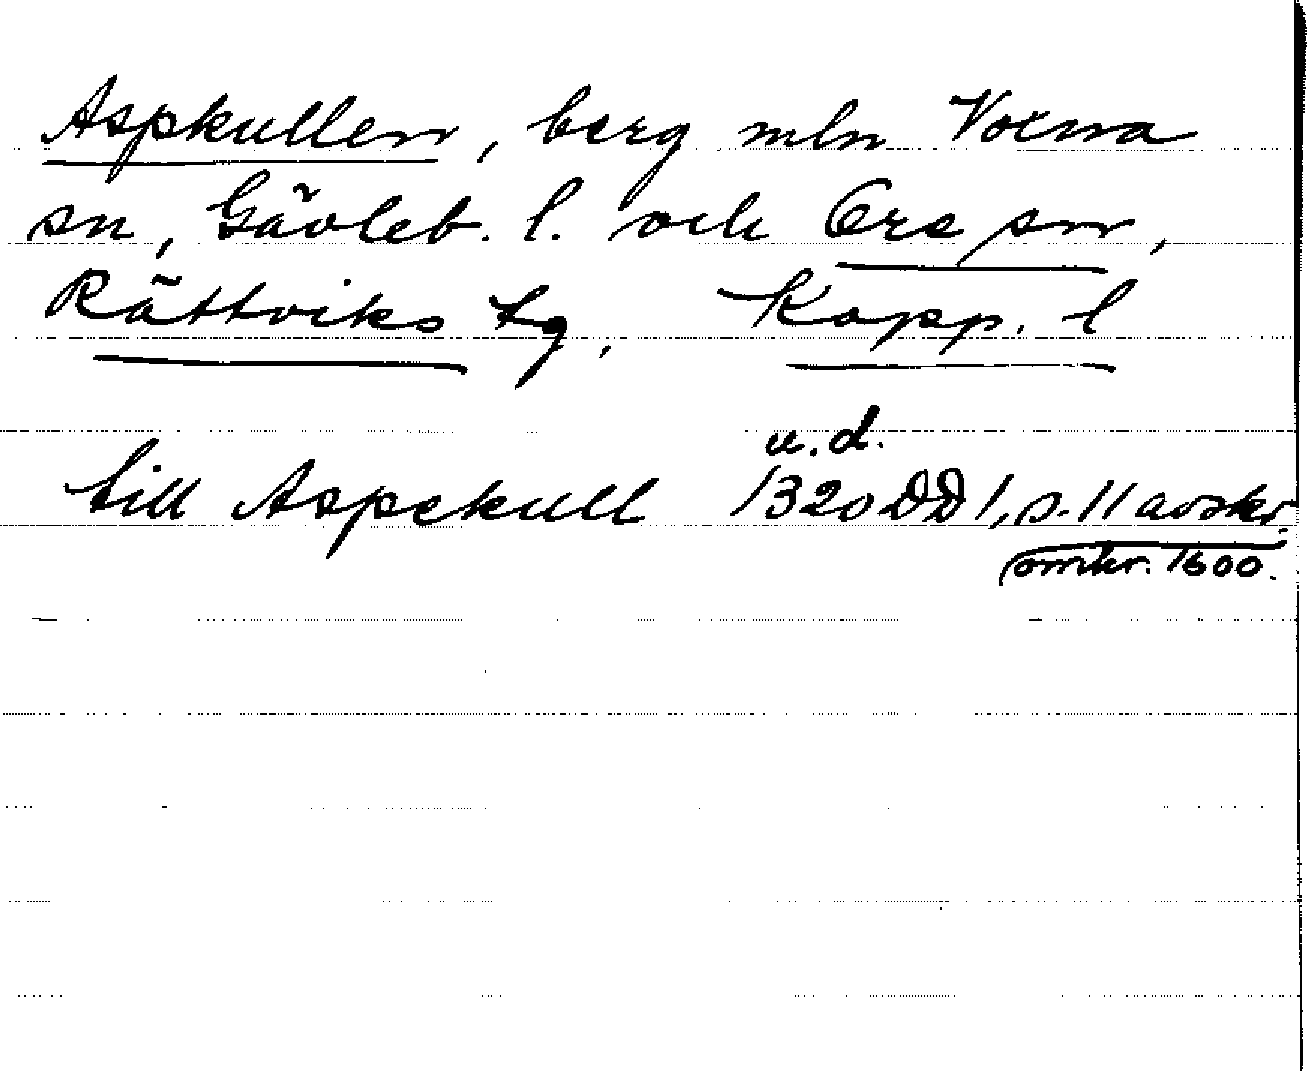 Aspkullen, berg mln Voxna
sn, Gävleb. l. och Ore sn,
Rättviks tg, Kopp. l
u.d.
till Aspekull 1320 DD 1, s. 11 avskr.
omkr. 1600.